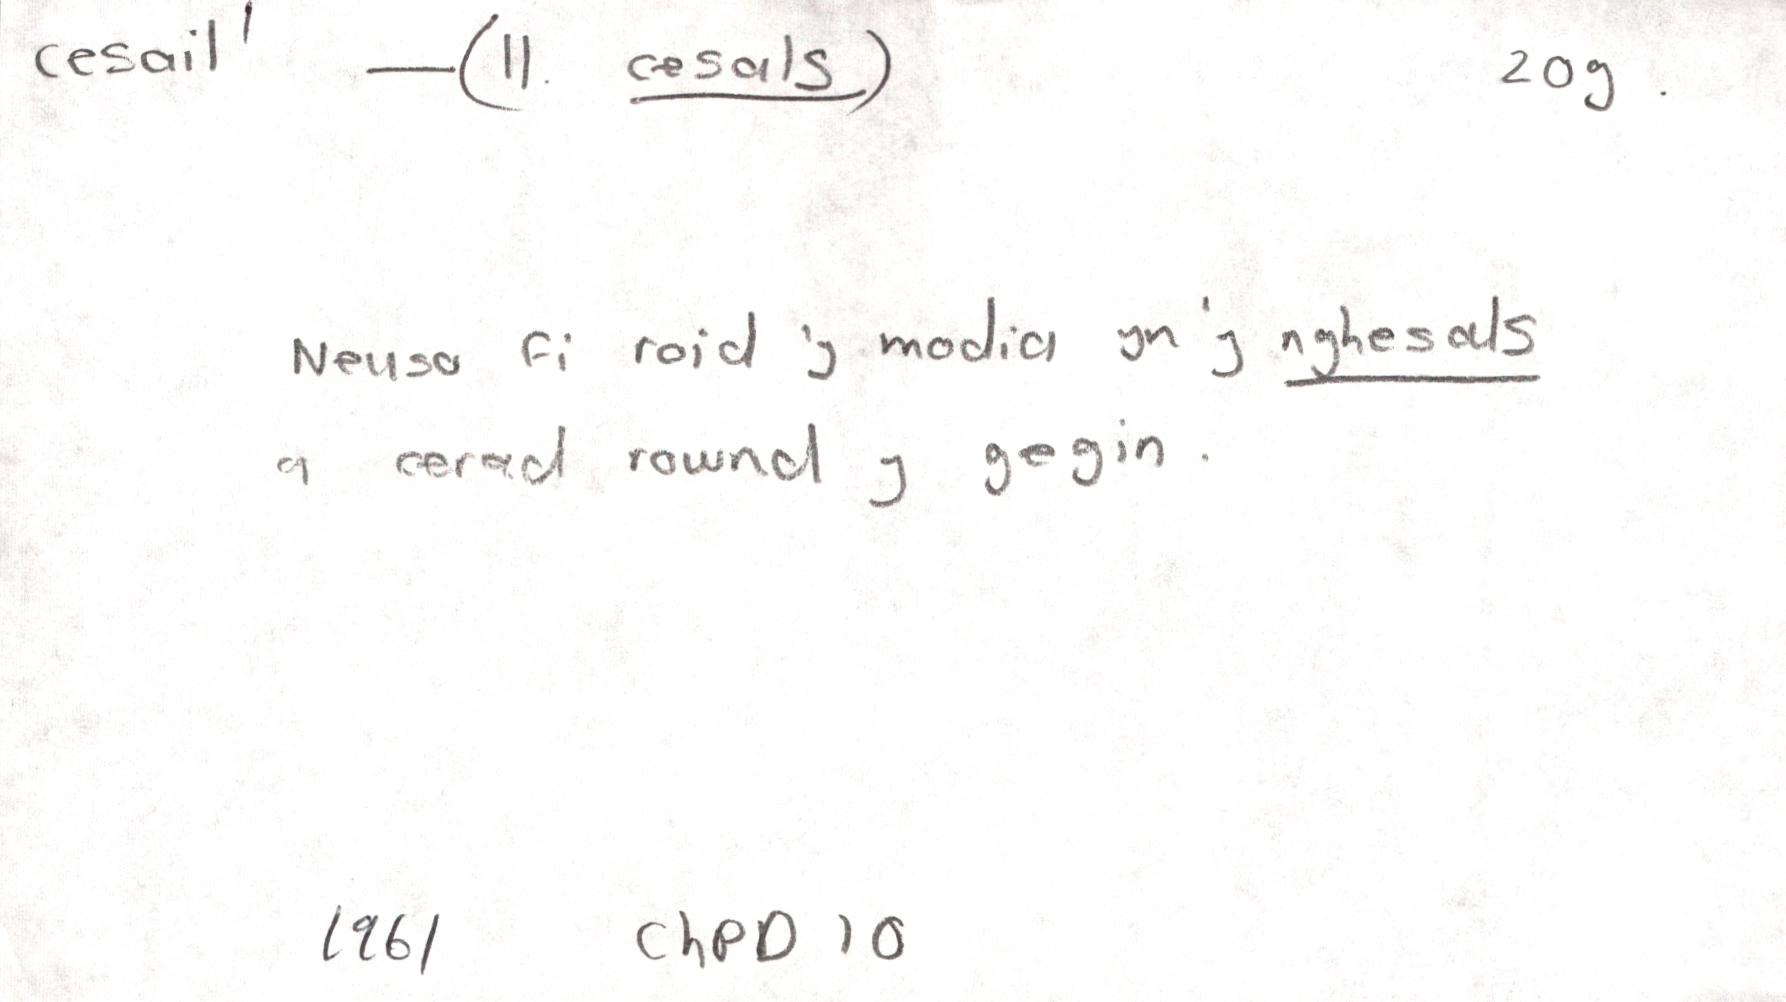 cesail¹ —(ll. cesals) 20g.
Neuso fi roid 'y modia yn 'y nghesals
a cered rownd y gegin.
1961 ChPD 10